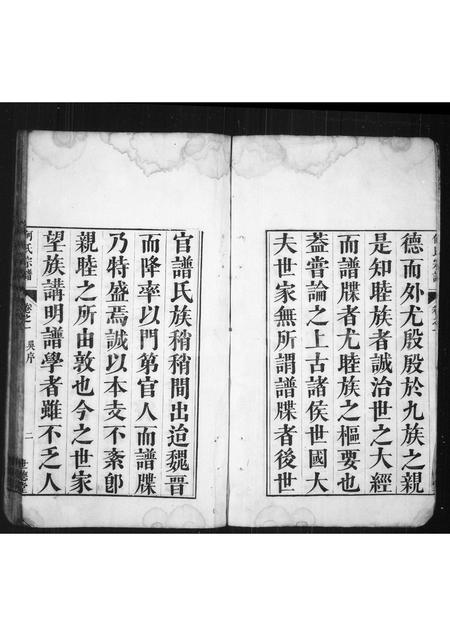 德而外尤殷殷於九族之親
是知睦族者誠治世之大經
而譜牒者尤睦族之樞要也
蓋嘗論之上古諸侯世國大
夫世家無所謂譜牒者後世
官譜氏族稍稍間出迨魏晋
而降率以門第官人而譜牒
乃特盛焉誠以本支不紊卽
親睦之所由敦也今之世家
望族講明譜學者雖不乏人
何氏宗譜
卷之一
吳序
二
世德堂